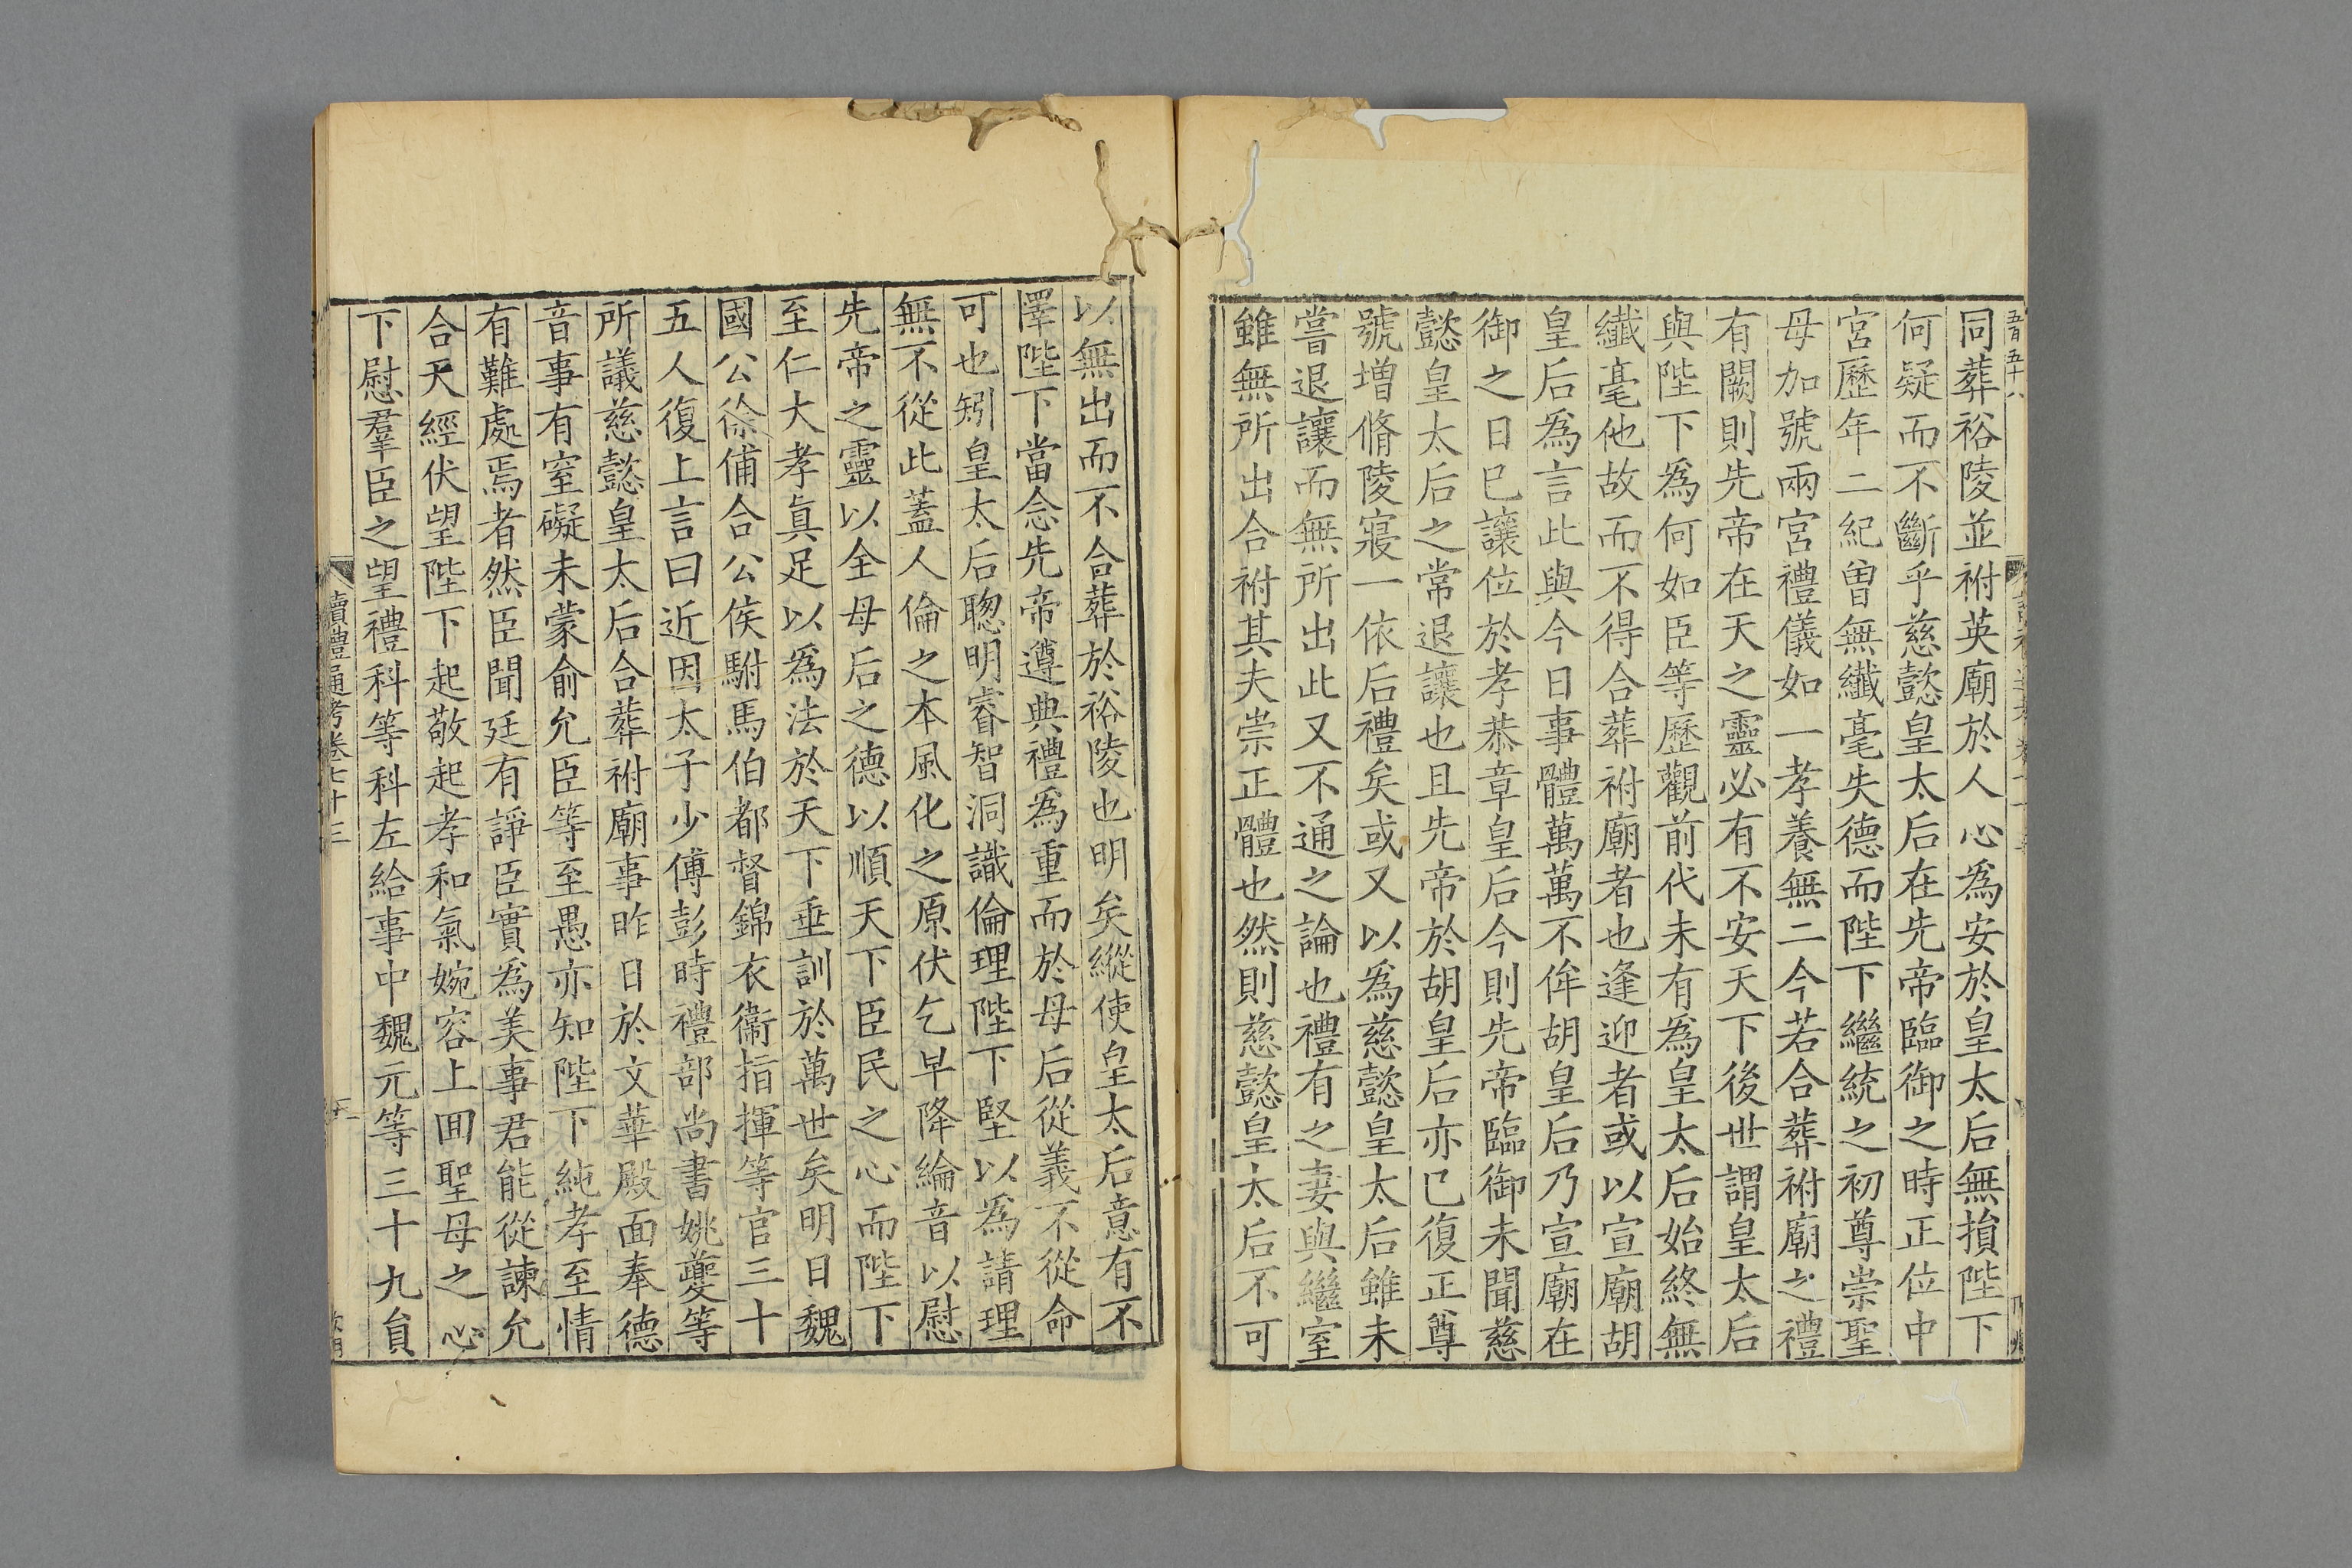 同葬裕陵並祔英廟於人心為安於皇太后無損陛下
何疑而不斷乎慈懿皇太后在先帝臨御之時正位中
宮歷年二紀曾無纖毫失德而陛下繼統之初尊崇聖
母加號兩宮禮儀如一孝養無二今若合葬祔廟之禮
有闕則先帝在天之靈必有不安天下後世謂皇太后
與陛下爲何如臣等歷觀前代未有爲皇太后始終無
纖毫他故而不得合葬祔廟者也逢迎者或以宣廟胡
皇后爲言此與今日事體萬萬不侔胡皇后乃宣廟在
御之日已讓位於孝恭章皇后今則先帝臨御未聞慈
懿皇太后之常退讓也且先帝於胡皇后亦已復正尊
號增脩陵寢一依后禮矣或又以爲慈懿皇太后雖未
嘗退讓而無所出此又不通之論也禮有之妻與繼室
雖無所出合祔其夫崇正體也然則慈懿皇太后不可
以無出而不合葬於裕陵也明矣縱使皇太后意有不
懌陛下當念先帝遵典禮爲重而於母后從義不從命
可也矧皇太后聰明睿智洞識倫理陛下堅以爲請理
無不從此蓋人倫之本風化之原伏乞早降綸音以慰
先帝之靈以全母后之德以順天下臣民之心而陛下
至仁大孝眞足以爲法於天下垂訓於萬世矣明日魏
國公徐俌合公侯駙馬伯都督錦衣衞指揮等官三十
五人復上言曰近因太子少傅彭時禮部尚書姚夔等
所議慈懿皇太后合葬祔廟事昨日於文華殿面奉德
音事有窒礙未蒙俞允臣等至愚亦知陛下純孝至情
有難處焉者然臣聞廷有諍臣實爲美事君能從諫允
合天經伏望陛下起敬起孝和氣婉容上囬聖母之心
下慰羣臣之望禮科等科左給事中魏元等三十九員
讀禮通考卷七十三